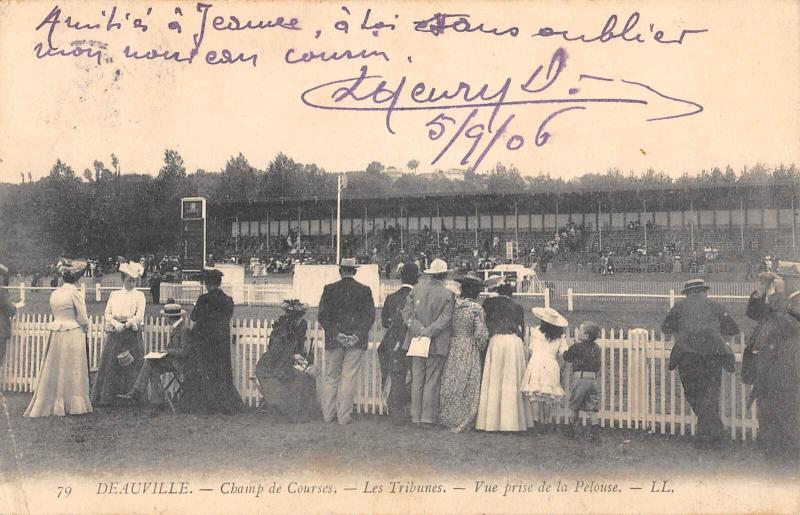 Amitiés à Jeanne, à toi sans oublier
mon nouveau cousin.
Henry D.
5/9/06
79 DEAUVILLE. — Champ de Courses. — Les Tribunes. — Vue prise de la Pelouse. — LL.